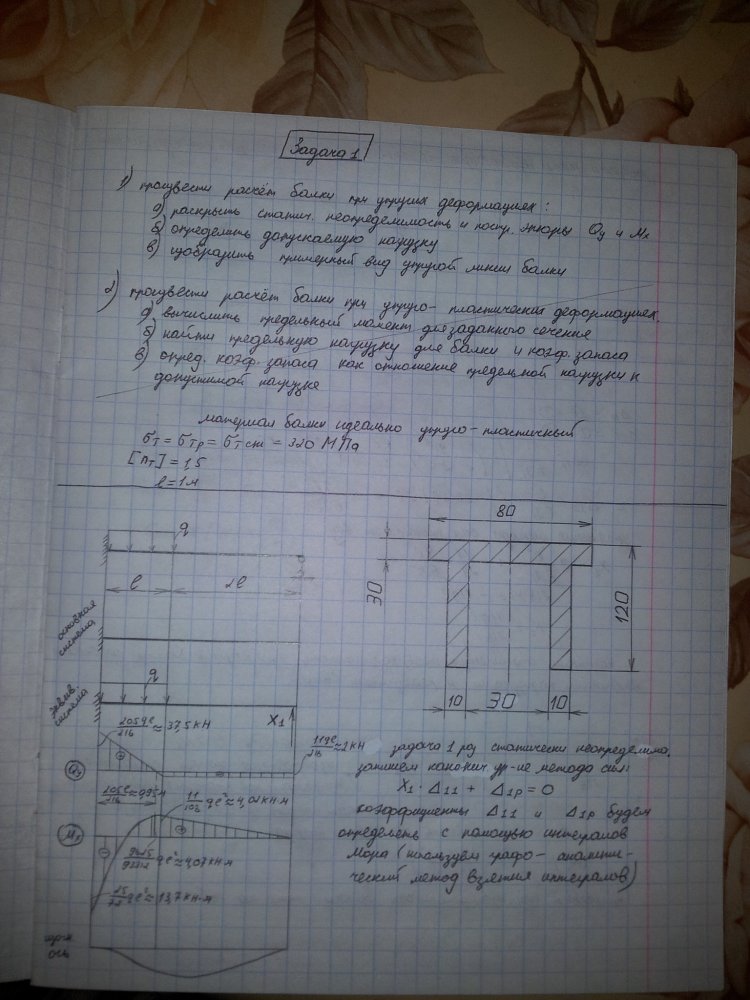 Задача 1
1) произвести расчёт балки при упругих деформациях:
а) раскрыть статич. неопределимость и постр. эпюры Qy и Mx
б) определить допускаемую нагрузку
в) изобразить примерный вид упругой линии балки
2) произвести расчёт балки при упруго-пластических деформациях.
а) вычислить предельный момент для заданного сечения
б) найти предельную нагрузку для балки и коэф. запаса
в) опред. коэф. запаса как отношение предельной нагрузки к
допустимой нагрузке
материал балки идеально упруго-пластичный
σт = σтр = σт сж = 320 МПа
[nт] = 1,5
l = 1м
q
l
2l
основная
система
эквив.
система
q
X1
205ql/216 ≈ 37,5 кН
11ql/216 ≈ 2 кН
Qy
205l/216 ≈ 0,95м
11/108 ql² ≈ 4,02 кН·м
Mx
ql² ≈ 4,07 кН·м
25/72 ql² ≈ 13,7 кН·м
80
30
120
10
30
10
задача 1 раз статически неопределима.
запишем канонич. ур-ие метода сил:
X1 · Δ11 + Δ1p = 0
коэффициенты Δ11 и Δ1p будем
определять с помощью интегралов
Мора (используем графо-аналити-
ческий метод взятия интегралов)